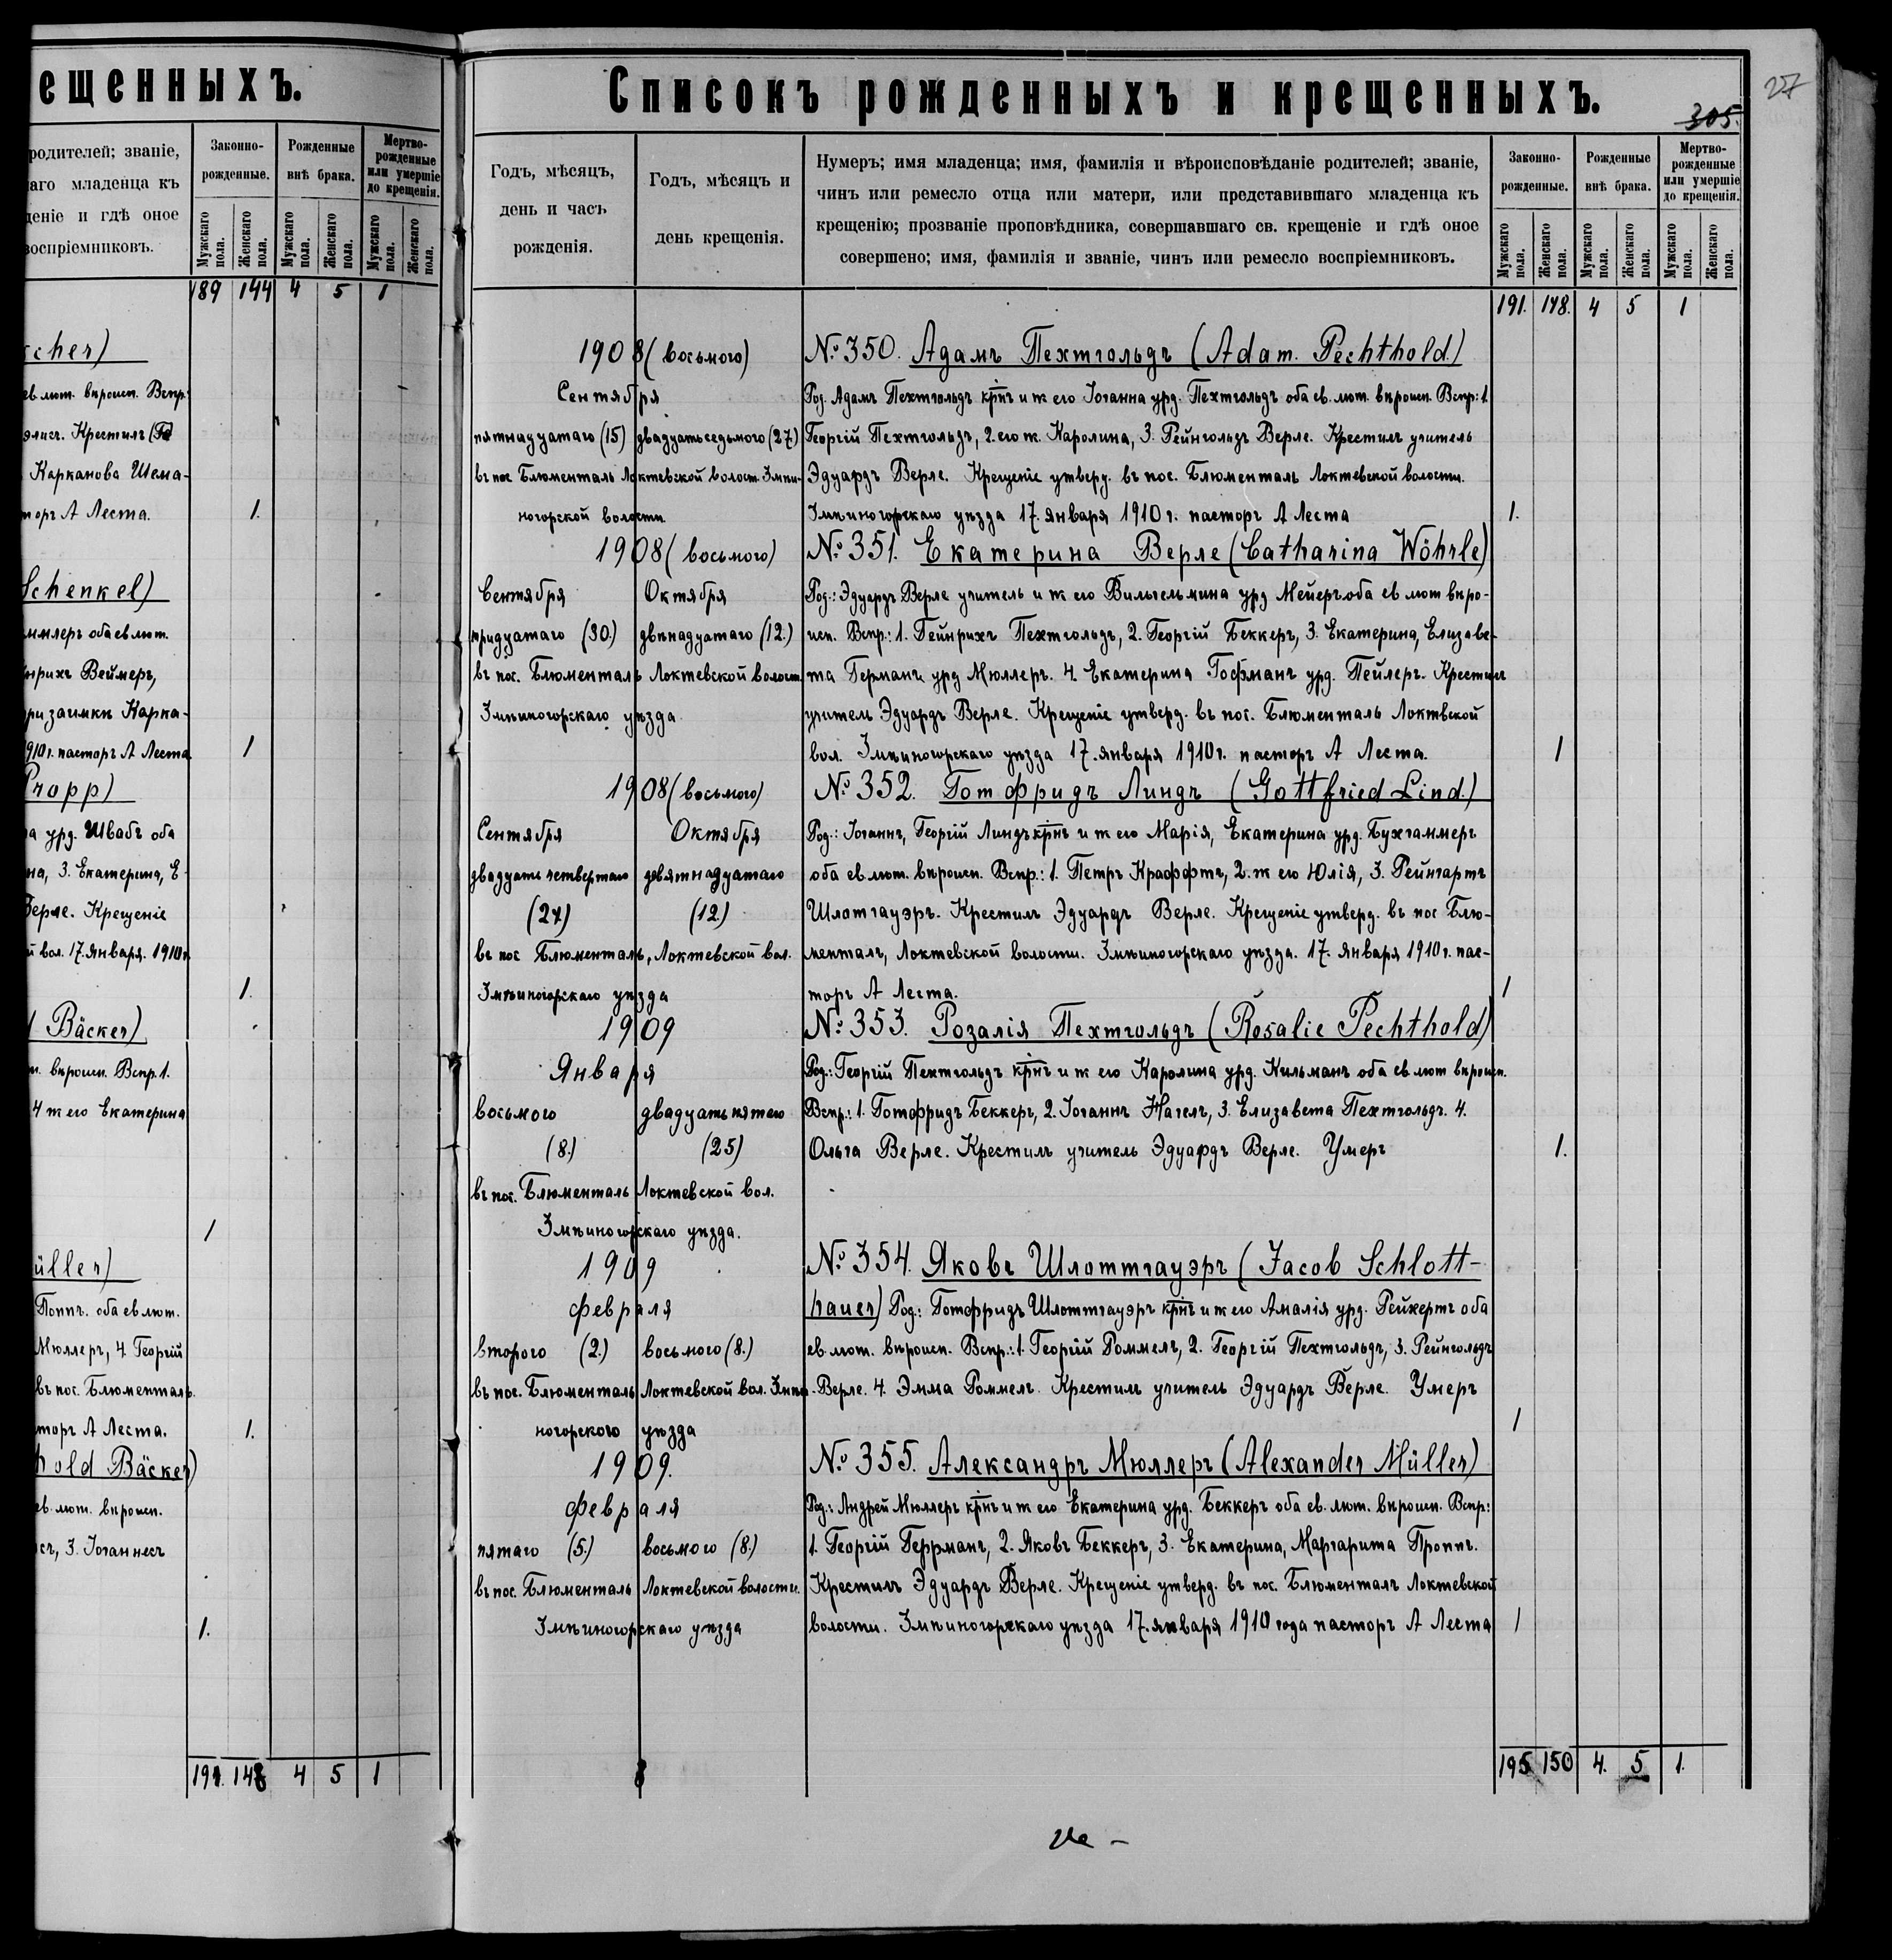 ещенныхъ.
родителей; званіе,
наго младенца къ
деніе и гдѣ оное
воспріемниковъ.
Законно-
рожденные.
Рожденные
внѣ брака.
Мертво-
рожденные
или умершіе
до крещенія.
Мужскаго пола.
Женскаго пола.
Мужскаго пола.
Женскаго пола.
Мужскаго пола.
Женскаго пола.
189 144 4 5 1
cher)
ев лют. вѣроисп. Вспр:
Крестилъ
Карканова Шема-
торъ А Леста. 1.
Schenkel)
ммлеръ оба ев лют.
нрихъ Веймеръ,
ри заимкѣ Карка-
910 г. пасторъ А Леста 1
Propp)
а урд. Швабъ оба
на, 3. Екатерина, Е-
Верле. Крещеніе
й вол. 17. Января. 1910 г.
1.
Bäcker)
вѣроисп. Вспр. 1.
4 ж его Екатерина
1
üller)
Поппъ. оба ев лют.
Мюллеръ, 4. Георгій
въ пос. Блюменталь.
торъ А Леста. 1.
hold Bäcker)
ев. лют. вѣроисп.
съ, 3. Іоганнесъ
1.
191. 148 4 5 1
27
Списокъ рожденныхъ и крещенныхъ.
305.
Годъ, мѣсяцъ,
день и часъ
рожденія.
Годъ, мѣсяцъ и
день крещенія.
Нумеръ; имя младенца; имя, фамилія и вѣроисповѣданіе родителей; званіе,
чинъ или ремесло отца или матери, или представившаго младенца къ
крещенію; прозваніе проповѣдника, совершавшаго св. крещеніе и гдѣ оное
совершено; имя, фамилія и званіе, чинъ или ремесло воспріемниковъ.
Законно-
рожденные.
Рожденные
внѣ брака.
Мертво-
рожденные
или умершіе
до крещенія.
Мужскаго пола.
Женскаго пола.
Мужскаго пола.
Женскаго пола.
Мужскаго пола.
Женскаго пола.
191. 148. 4 5 1
1908 (восьмого) №350. Адамъ Пехтгольдъ (Adam. Pechthold.)
Сентября Род. Адамъ Пехтгольдъ крнъ и ж его Іоганна урд. Пехтгольдъ оба ев. лют. вѣроисп. Вспр: 1.
пятнадцатаго (15) двадцать седьмого (27) Георгій Пехтгольдъ, 2. его ж. Каролина, 3. Рейнгольдъ Верле. Крестилъ учитель
въ пос Блюменталь Локтевской волост. Змѣи- Эдуардъ Верле. Крещеніе утверд. въ пос. Блюменталь Локтевской волости.
ногорской волости. Змѣиногорскаго уѣзда 17. Января 1910 г. пасторъ А Леста 1.
1908 (восьмого) №351. Екатерина Верле (Catharina Wöhrle)
Сентября Октября Род.: Эдуардъ Верле учитель и ж его Вильгельмина урд Мейеръ оба ев лют вѣро-
тридцатаго (30.) двѣнадцатаго (12.) исп. Вспр.: 1. Гейнрихъ Пехтгольдъ, 2. Георгій Беккеръ, 3. Екатерина, Елизаве-
въ пос. Блюменталь Локтевской волост. та Германъ урд Мюллеръ. 4. Екатерина Гофманъ урд. Пейлеръ. Крестилъ
Змѣиногорскаго уѣзда учитель Эдуардъ Верле. Крещеніе утверд. въ пос. Блюменталь Локтвской
вол. Змѣиногорскаго уѣзда 17. января 1910 г. пасторъ А Леста. 1
1908 (восьмого) №352. Готфридъ Линдъ (Gottfried Lind.)
Сентября Октября Род.: Іоганнъ, Георгій Линдъ крнъ и ж его Марія, Екатерина урд. Бухгаммеръ
двадцать четвертаго девятнадцатаго оба ев лют. вѣроисп. Вспр.: 1. Петръ Краффтъ, 2. ж его Юлія, 3. Рейнгартъ
(24) (12) Шлотгауэръ. Крестилъ Эдуардъ Верле. Крещеніе утверд. въ пос Блю-
въ пос Блюменталь, Локтевской вол. менталъ, Локтевской волости. Змѣиногорскаго уѣзда. 17. Января 1910 г. пас-
Змѣиногорскаго уѣзда торъ А Леста. 1
1909 №353. Розалія Пехтгольдъ (Rosalie Pechthold)
Января Род.: Георгій Пехтгольдъ крнъ и ж его Каролина урд. Кильманъ оба ев лют вѣроисп.
восьмого двадцать пятаго Вспр.: 1. Готфридъ Беккеръ, 2. Іоганнъ Нагелъ, 3. Елизавета Пехтгольдъ. 4.
(8.) (25) Ольга Верле. Крестилъ учитель Эдуардъ Верле. Умеръ 1.
въ пос. Блюменталь Локтевской вол.
Змѣиногорскаго уѣзда.
1909 №354. Яковъ Шлоттгауэръ (Jacob Schlott-
февраля hauer) Род.: Готфридъ Шлоттгауэръ крнъ и ж его Амалія урд. Рейхертъ оба
второго (2.) восьмого (8.) ев. лют. вѣроисп. Вспр.: 1. Георгій Роммелъ, 2. Георгій Пехтгольдъ, 3. Рейнгольдъ
въ пос. Блюменталь Локтевской вол. Змѣи- Верле. 4. Эмма Роммелъ. Крестилъ учитель Эдуардъ Верле. Умеръ
ногорского уѣзда 1
1909. №355. Александръ Мюллеръ (Alexander Müller)
февраля Род.: Андрей Мюллеръ крнъ и ж его Екатерина урд. Беккеръ оба ев. лют. вѣроисп. Вспр:
пятаго (5.) восьмого (8.) 1. Георгій Геррманъ, 2. Яковъ Беккеръ, 3. Екатерина, Маргарита Проппъ.
въ пос. Блюменталь Локтевской волости. Крестилъ Эдуардъ Верле. Крещеніе утверд. въ пос. Блюменталъ Локтевской
Змѣиногорскаго уѣзда волости. Змѣиногорскаго уѣзда 17. января 1910 года пасторъ А Леста 1
195 150 4. 5 1.